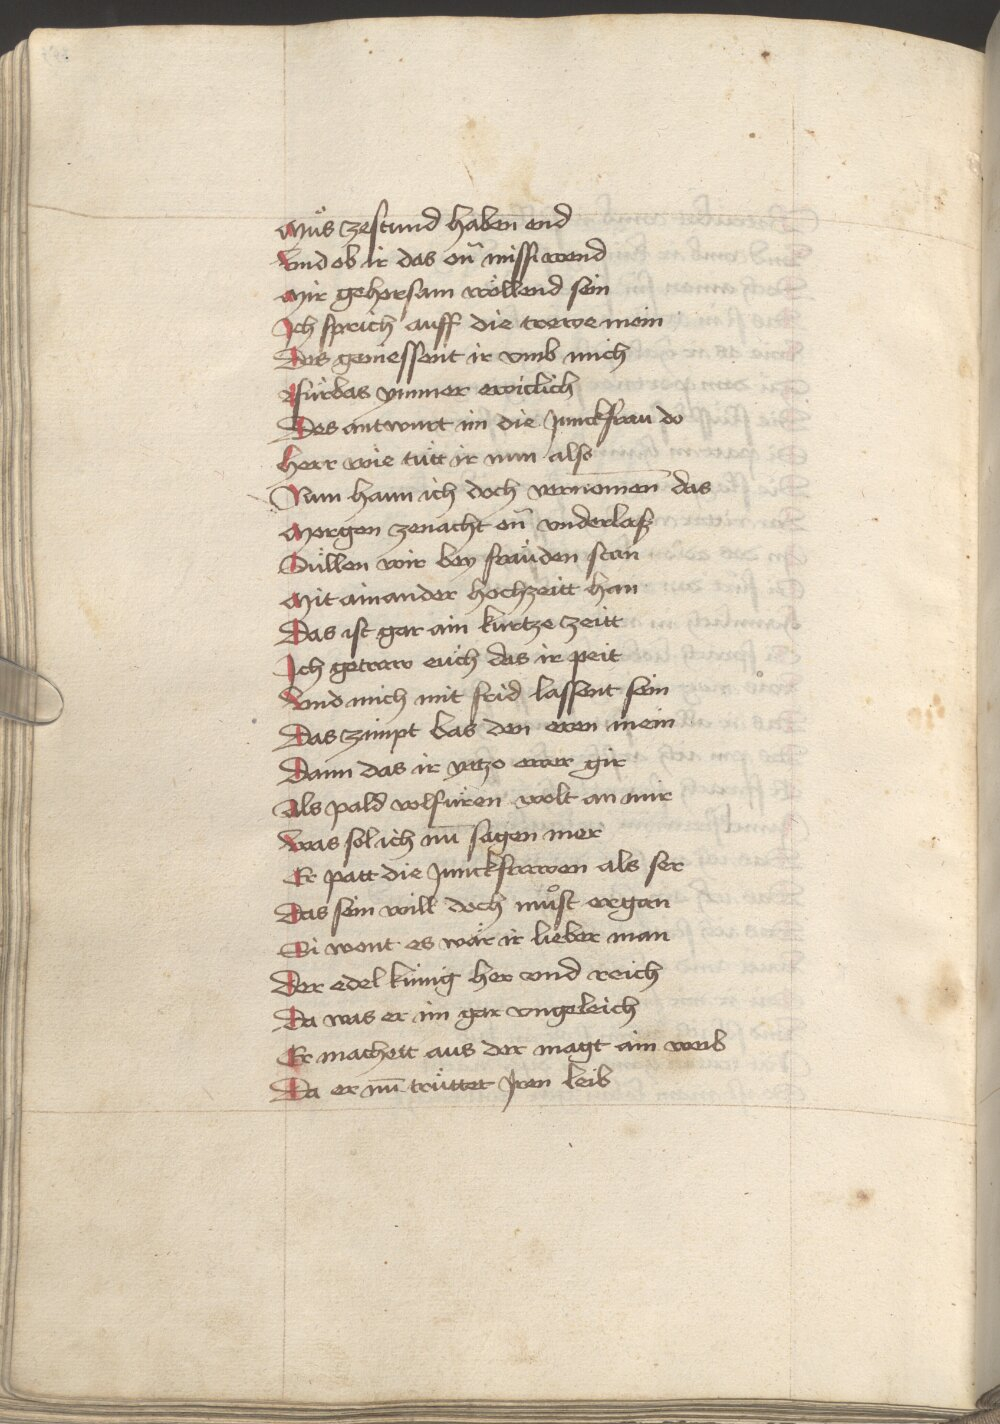 Müs zestund haben end
Vnd ob ir das on̄ missiwend
Mir gehorsam wöllend sein
Ich sprich auff die trewe mein
Des geniessent ir vmb mich
Fürbas ymmer ewiclich
Des antwurt im die Junckfrau do
Herr wie tütt ir nun also
Nun hann ich doch vernomen das
Morgen zenacht on̄ vnderlasz
Süllen wir bey fräuden stan
Mit ainander hochzeitt han
Das ist gar ain kurtze zeitt
Ich getraw euch das ir peit
Vnd mich mit frid lassent sein
Das zimpt bas den eren mein
Dann das ir yetzo ewer gir
Als pald volfüren wolt an mir
Was sol ich nū sagen mer
Er patt die Junckfrawen als ser
Das sein will doch muͦst ergan
Si went es wär ir lieber man
Der edel künig her vnd reich
Da was er im gar vngeleich
Er machett aus der magt ain weib
Da er nū trüttet Iren leib